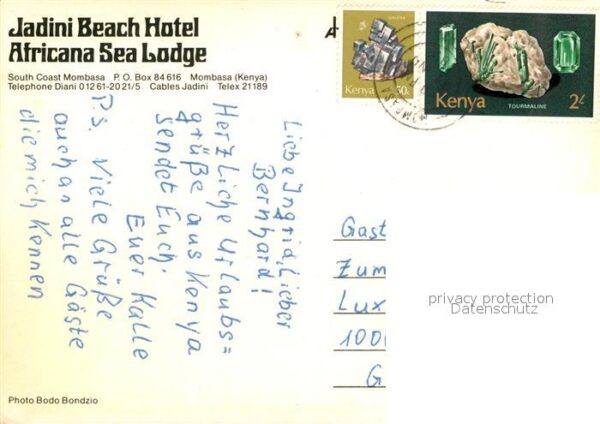 Jadini Beach Hotel
Africana Sea Lodge
South Coast Mombasa P. O. Box 84 616 Mombasa (Kenya)
Telephone Diani 012 61-20 21/5 Cables Jadini Telex 21189
GALENA
Kenya 50c
Kenya TOURMALINE 2/-
Liebe Ingrid, Lieber
Bernhard!
Herzliche Urlaubs=
grüße aus Kenya
sendet Euch
Euer Kalle
Ps. Viele Grüße
auch an alle Gäste
die mich kennen
Gast
Zum
Lux
100
G
privacy protection
Datenschutz
Photo Bodo Bondzio